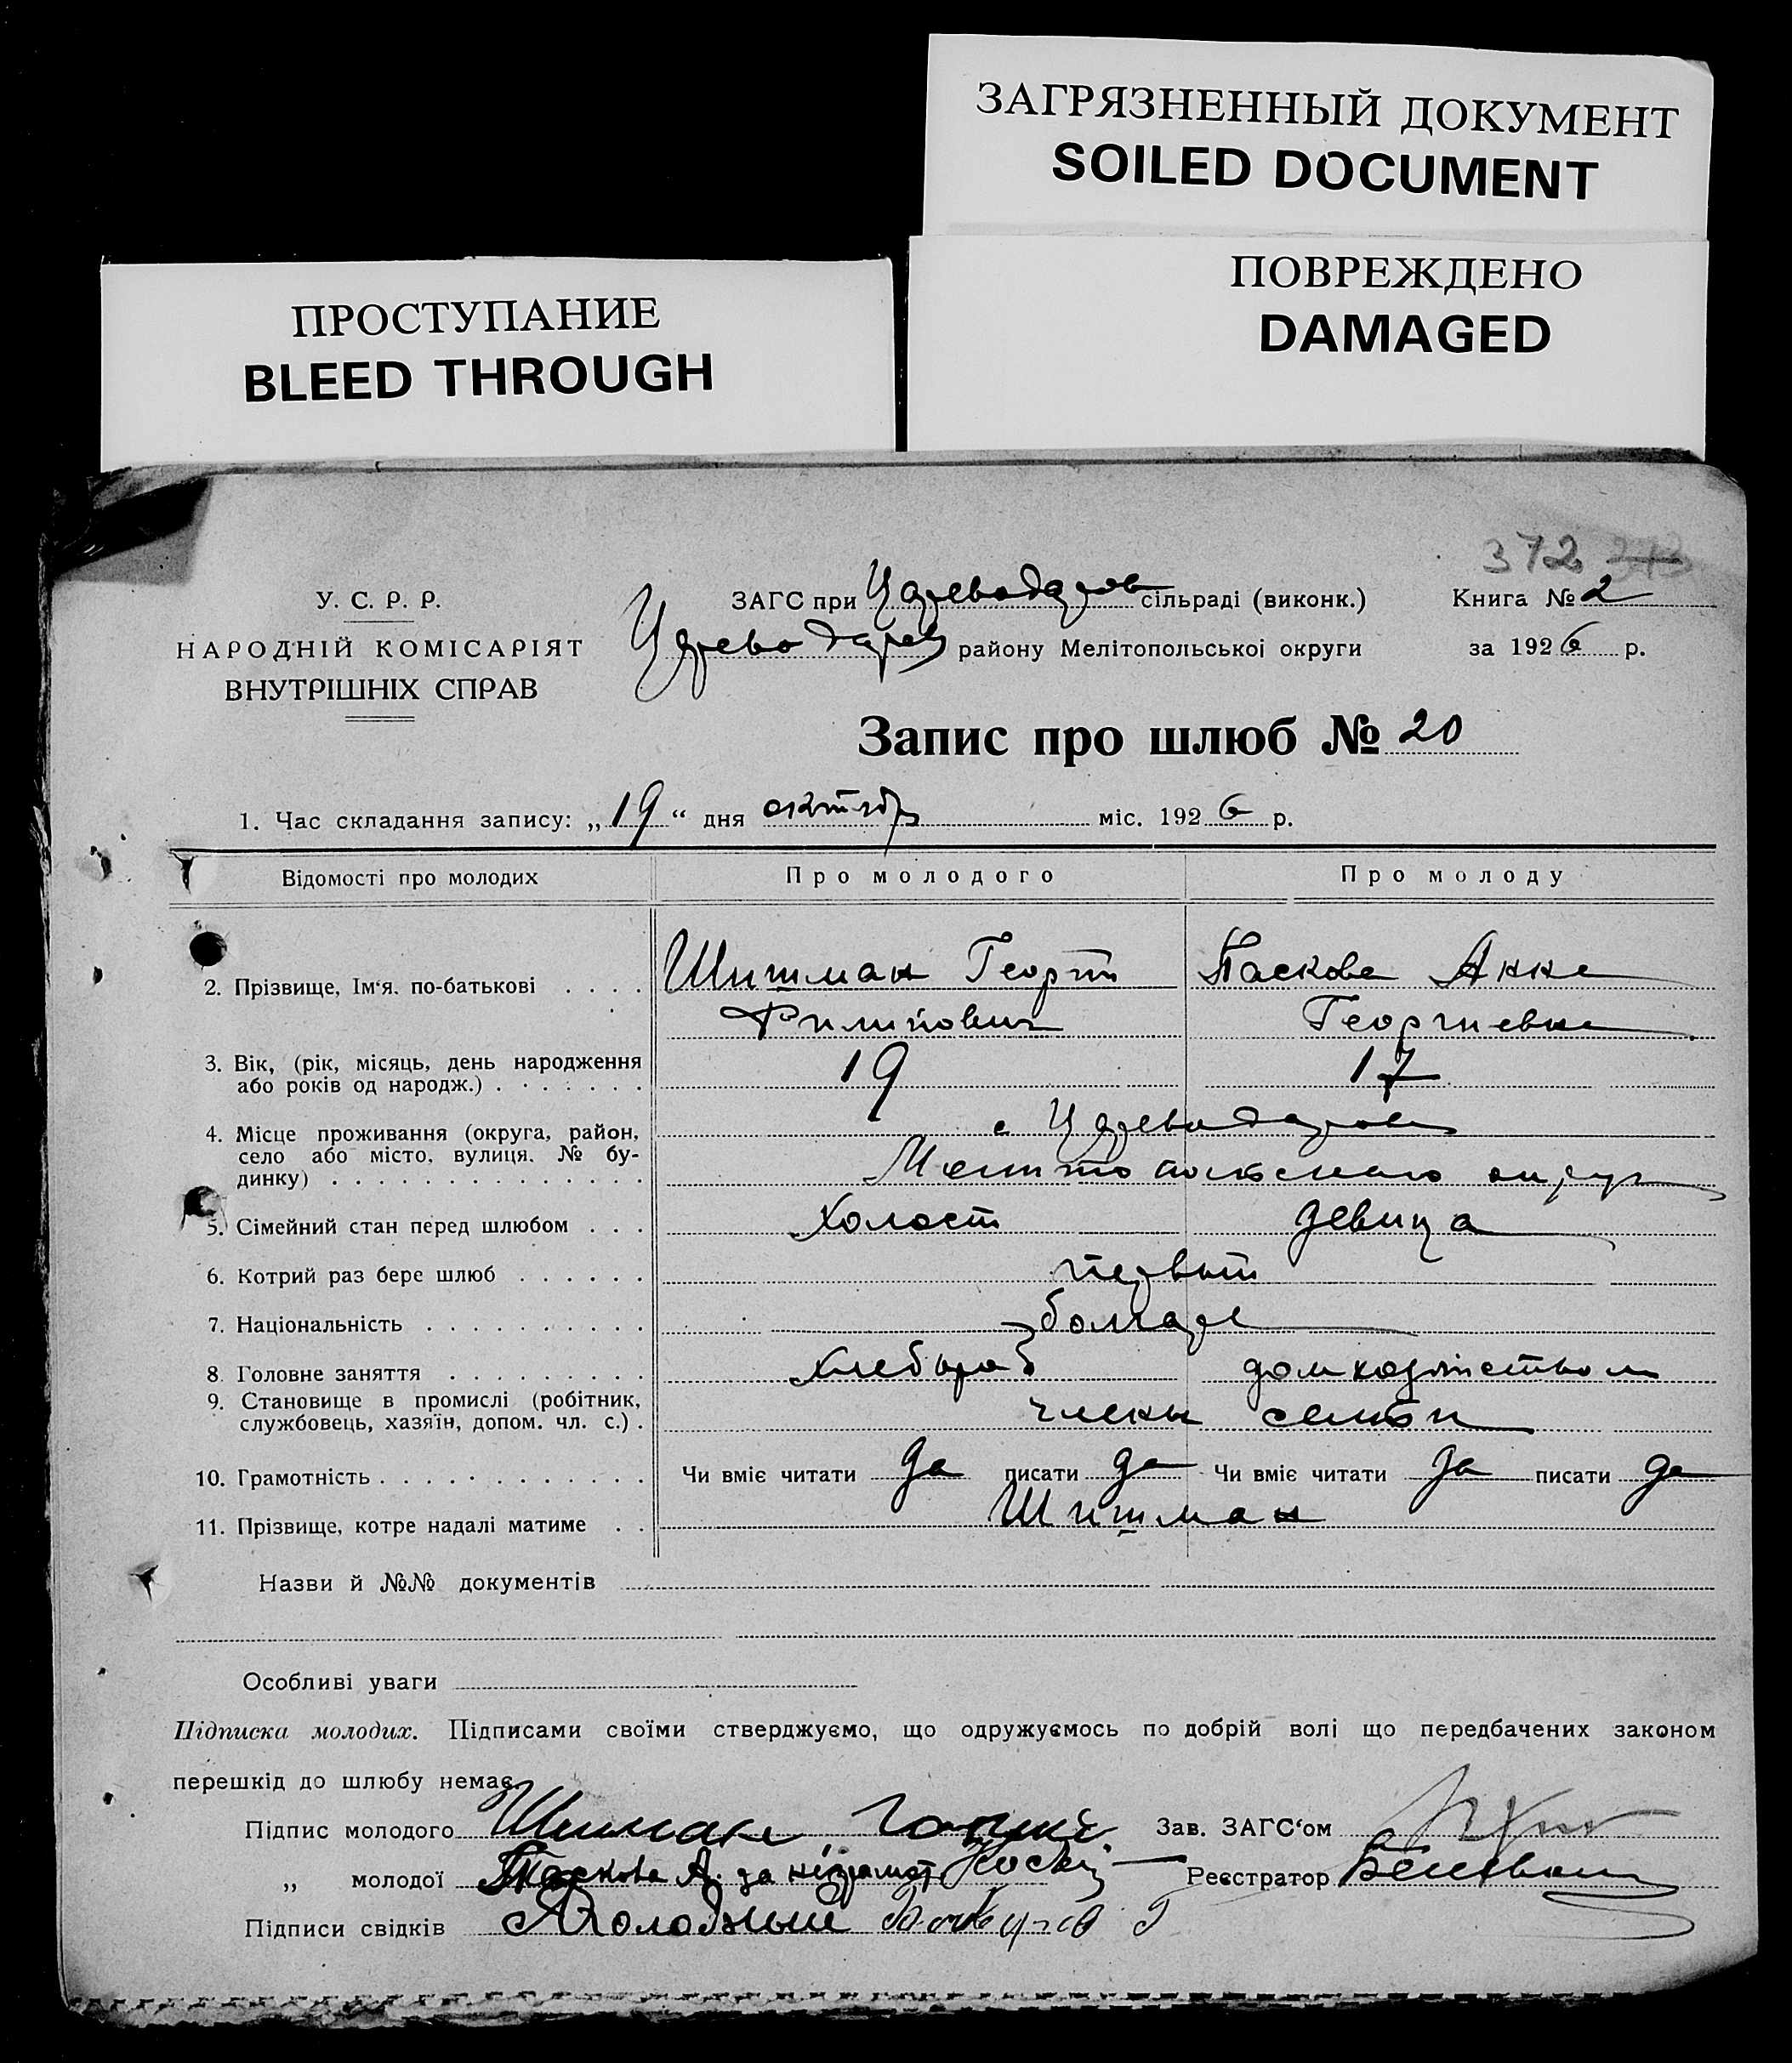 ЗАГРЯЗНЕННЫЙ ДОКУМЕНТ
SOILED DOCUMENT
ПОВРЕЖДЕНО
DAMAGED
ПРОСТУПАНИЕ
BLEED THROUGH
372
У. С. Р. Р.
НАРОДНІЙ КОМІСАРІЯТ
ВНУТРІШНІХ СПРАВ
ЗАГС при Цареводаров сільраді (виконк.)
Цареводаров району Мелітопольської округи
Книга № 2
за 1926 р.
Запис про шлюб № 20
1. Час складання запису: „19“ дня октябр міс. 1926 р.
Відомості про молодих Про молодого Про молоду
2. Прізвище, Ім'я. по-батькові . . . . Шишман Георги Паскова Анна
Филипович Георгиевна
3. Вік, (рік, місяць, день народження
або років од народж.) . . . . . . . 19 17
4. Місце проживання (округа, район, с Цареводаров
село або місто, вулиця, № бу-
динку) . . . . . . . . . . . . . . Мелитопольского округ
5. Сімейний стан перед шлюбом . . . Холост девица
6. Котрий раз бере шлюб . . . . . . первый
7. Національність . . . . . . . . . . болгаре
8. Головне заняття . . . . . . . . . хлебороб домхозяйством
9. Становище в промислі (робітник,
службовець, хазяїн, допом. чл. с.) . члены семьи
10. Грамотність . . . . . . . . . . . . Чи вміє читати да писати да Чи вміє читати да писати да
11. Прізвище, котре надалі матиме . . Шишман
Назви й №№ документів
Особливі уваги
Підписка молодих. Підписами своїми стверджуємо, що одружуємось по добрій волі що передбачених законом
перешкід до шлюбу немає.
Підпис молодого Шишман Зав. ЗАГС'ом
„ молодої Паскова А. за неграмот Реєстратор
Підписи свідків